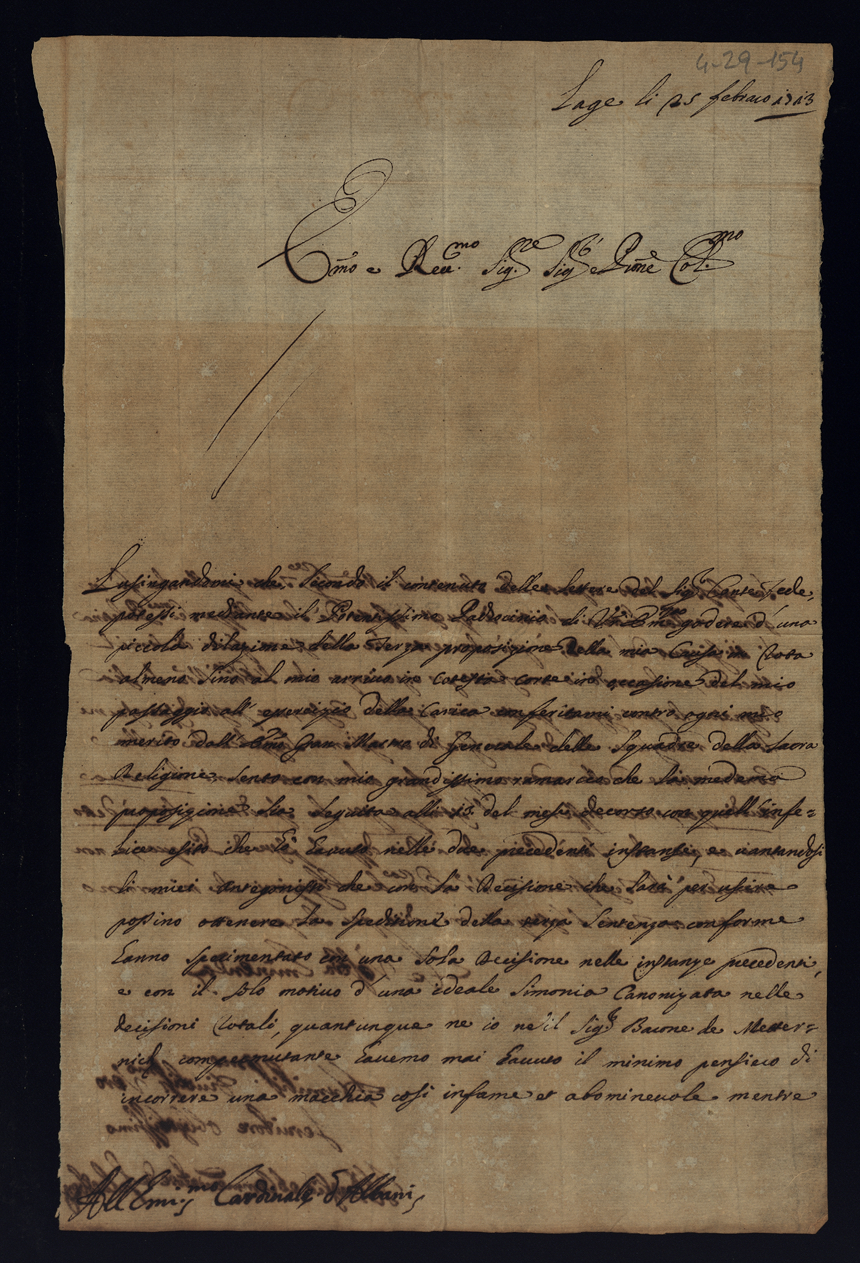 4-29-154
Lage li 25 febraro 1713
Em̃o e Reu.mo Sig.re Sig.re e Prone Col.mo
Lusingandomi che secondo il contenuto delle lettere del Sig. Conte Fede,
potessi mediante il Potentissimo Padrocinio di V. Em.za godere d'una
piccola dilazione della terza proposizione della mia Causa in Rota
almeno sino al mio arriuo in cotesta corte in occasione del mio
passaggio all' esercizio della Carica conferitami contro ogni mio
merito dall' Em̃o Gran Mastro di Generale delle Squadre della Sacra
Religione, sento con mio grandissimo ramarico che la medema
proposizione sia seguita alli 15 del mese decorso con quell' infe=
lice esito che hà hauuto nelle due precedenti instanze, e uantandosi
li miei antagonisti che con la Decisione che sarà per uscire
possino ottenere la speditione della terza sentenza conforme
hanno sperimentato con una sola Decisione nelle instanze precedenti,
e con il solo motiuo d'una ideale Simonia Canonizata nelle
decisioni Rotali, quantunque ne io ne il Sig.r Barone de Metter=
nich compermutante hauemo mai hauuto il minimo pensiero di
incorrere una macchia cosi infame et abomineuole mentre
All Em.mo Cardinale d'Albani